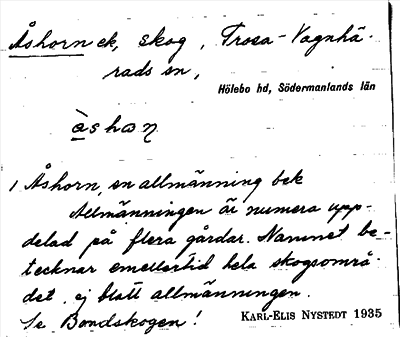 Åshorn ek, skog, Trosa-Vagnhä-
rads sn,
Hölebo hd, Södermanlands län
àshan
1 Åshorn, en allmänning bek
Allmänningen är numera upp-
delad på flera gårdar. Namnet be-
tecknar emellertid hela skogsområ-
det, ej blott allmänningen.
Se Bondskogen!
KARL-ELIS NYSTEDT 1935